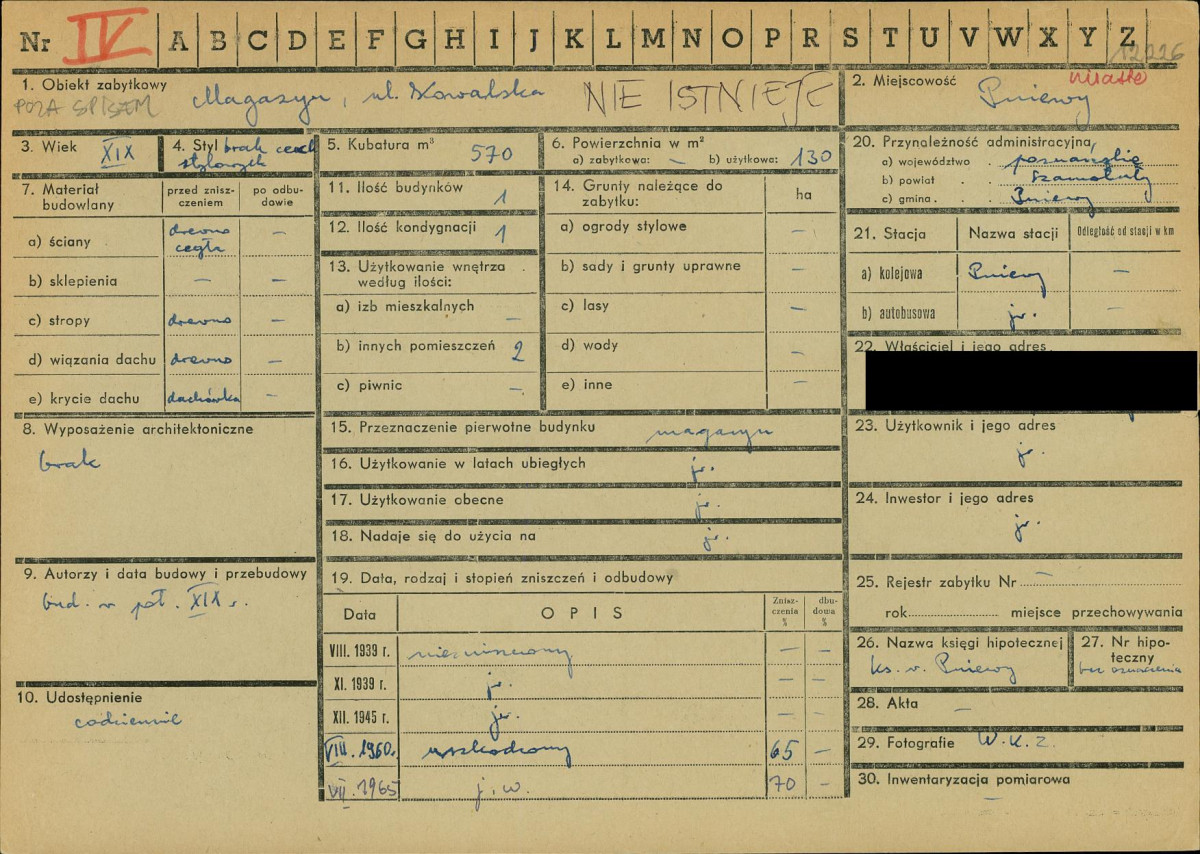 Nr IV A B C D E F G H I J K L M N O P R S T U V W X Y Z
12226
1. Obiekt zabytkowy Magazyn, ul. Kowalska NIE ISTNIEJE
POZA SPISEM
2. Miejscowość miasto
Pniewy
3. Wiek XIX
4. Styl brak cech
stylowych
5. Kubatura m³ 570
6. Powierzchnia w m²
a) zabytkowa: — b) użytkowa: 130
7. Materiał budowlany
przed zniszczeniem
po odbudowie
a) ściany drewno —
cegła
b) sklepienia — —
c) stropy drewno —
d) wiązania dachu drewno —
e) krycie dachu dachówka —
8. Wyposażenie architektoniczne
brak
9. Autorzy i data budowy i przebudowy
bud. w poł. XIX w.
10. Udostępnienie
codziennie
11. Ilość budynków 1
12. Ilość kondygnacji 1
13. Użytkowanie wnętrza
według ilości:
a) izb mieszkalnych —
b) innych pomieszczeń 2
c) piwnic —
14. Grunty należące do
zabytku:
ha
a) ogrody stylowe —
b) sady i grunty uprawne —
c) lasy —
d) wody —
e) inne —
15. Przeznaczenie pierwotne budynku magazyn
16. Użytkowanie w latach ubiegłych jw.
17. Użytkowanie obecne jw.
18. Nadaje się do użycia na jw.
19. Data, rodzaj i stopień zniszczeń i odbudowy
Data OPIS Zniszczenia % dbudowa %
VIII. 1939 r. niezniszczony — —
XI. 1939 r. jw. — —
XII. 1945 r. jw. — —
VIII. 1960r. uszkodzony 65 —
VII. 1965 j.w. 70 —
20. Przynależność administracyjna
a) województwo poznańskie
b) powiat Szamotuły
c) gmina Pniewy
21. Stacja Nazwa stacji Odległość od stacji w km
a) kolejowa Pniewy —
b) autobusowa jw. —
22. Właściciel i jego adres
23. Użytkownik i jego adres
jw.
24. Inwestor i jego adres
jw.
25. Rejestr zabytku Nr —
rok miejsce przechowywania
26. Nazwa księgi hipotecznej
ks. w. Pniewy
27. Nr hipoteczny
bez oznaczenia
28. Akta —
29. Fotografie W.K.Z.
30. Inwentaryzacja pomiarowa
—